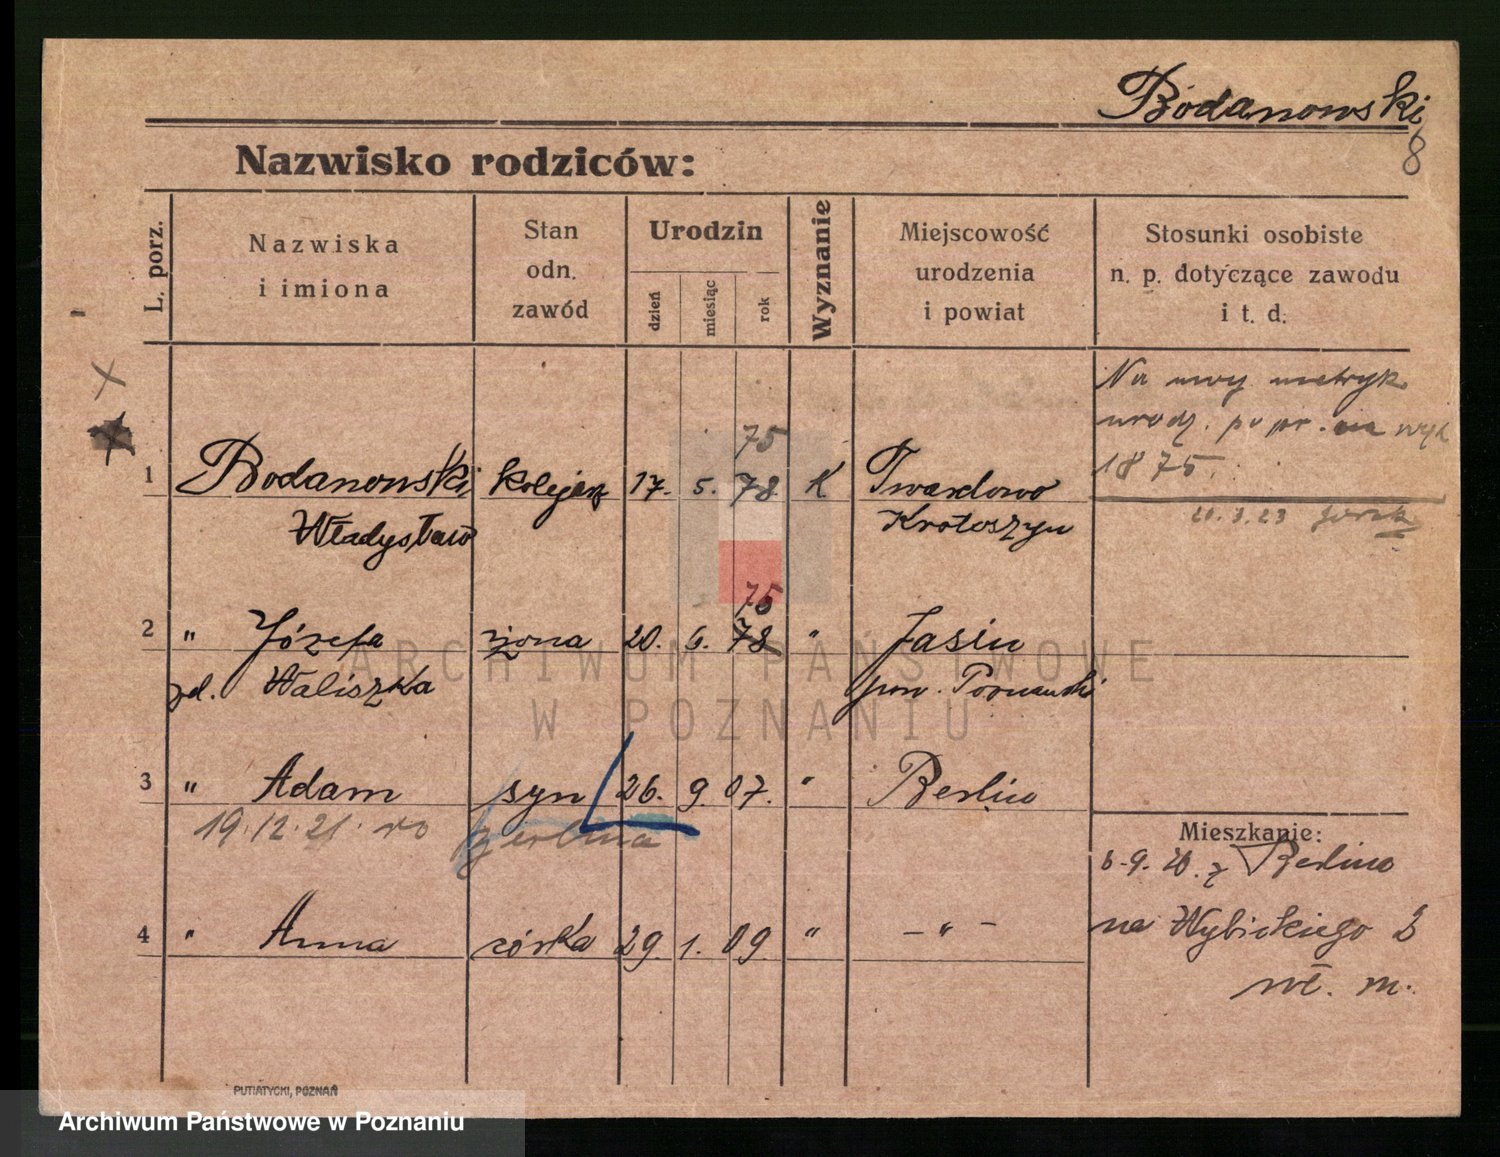 Bodanowski
8
Nazwisko rodziców:
L. porz.
Nazwiska
i imiona
Stan
odn.
zawód
Urodzin
dzień
miesiąc
rok
Wyznanie
Miejscowość
urodzenia
i powiat
Stosunki osobiste
n. p. dotyczące zawodu
i t. d.
Na mocy metryk
urodz. popr. na
1875.
75
1 Bodanowski kolejarz 17. 5. 78 K Twardowo
Władysław Krotoszyn
20.3.23
75
2 " Józefa żona 20. 6. 78 " Jasin
zd. Waliszka pow. Poznański
3 " Adam syn 26. 9. 07. " Berlin
19.12.21.
Mieszkanie:
6.9.20. z Berlina
4 " Anna córka 29. 1. 09. " — " —
na Wybickiego 3
wł. m.
PUTIATYCKI, POZNAŃ
ARCHIWUM PAŃSTWOWE
W POZNANIU
Archiwum Państwowe w Poznaniu